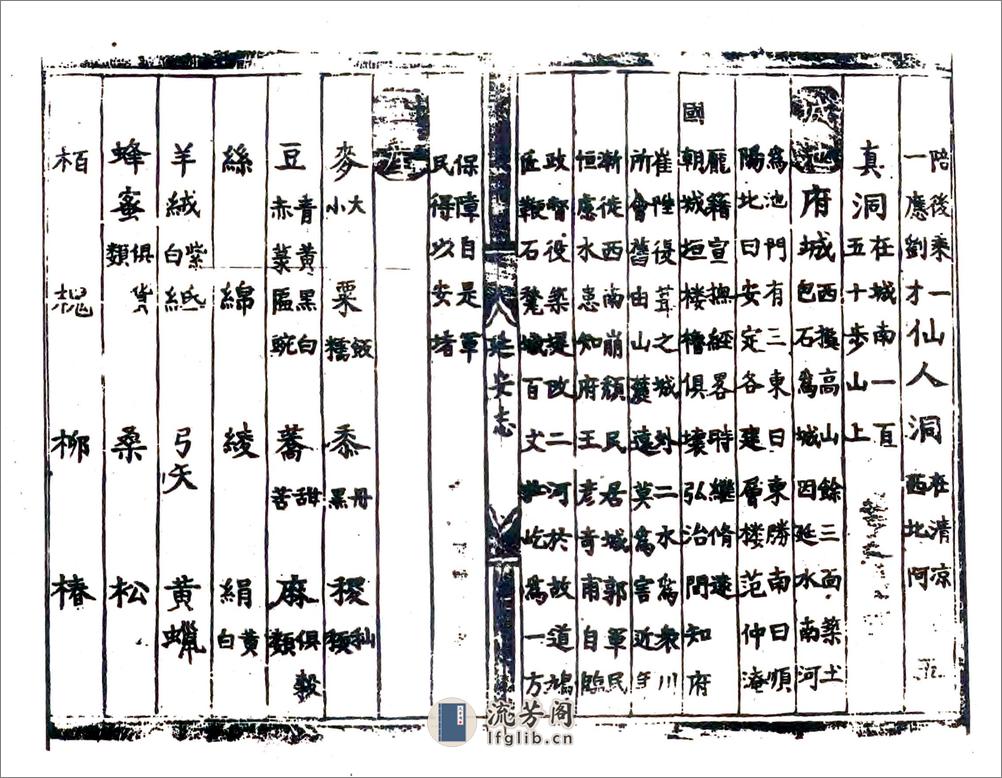 陪後乘一
一應劉才仙人洞在清凉
西北阿
真洞在城南一百
五十步山上
池府城西據高山餘三面築土
包石為城因延水南河
為池門有三東曰東勝南曰順
陽北曰安定各建層樓范仲淹
龐籍宣撫經畧時繼脩遠
國朝城垣樓櫓俱壞弘治間知府
崔陞復葺之城外二水為衆川
所會舊由山麓遠莫為害近年
漸徙西南崩頹民居城郭軍民
恒慮水患知府王彦奇甫自臨
政督役築堤改二河於故道鳩
匠鞭石甃城百丈壯屹為一方
保障自是軍
民得以安堵
延安志
產
麥大小 粟飯糯 黍丹黑 稷秈
豆青黃黑白赤菉豌 蕎甜苦 麻俱穀類
絲 綿 綾 絹黃白
羊絨紫白 弓矢 黃蠟
蜂蜜俱貨類 桑 松
栢 槐 柳 椿
流芳阁
lfglib.cn